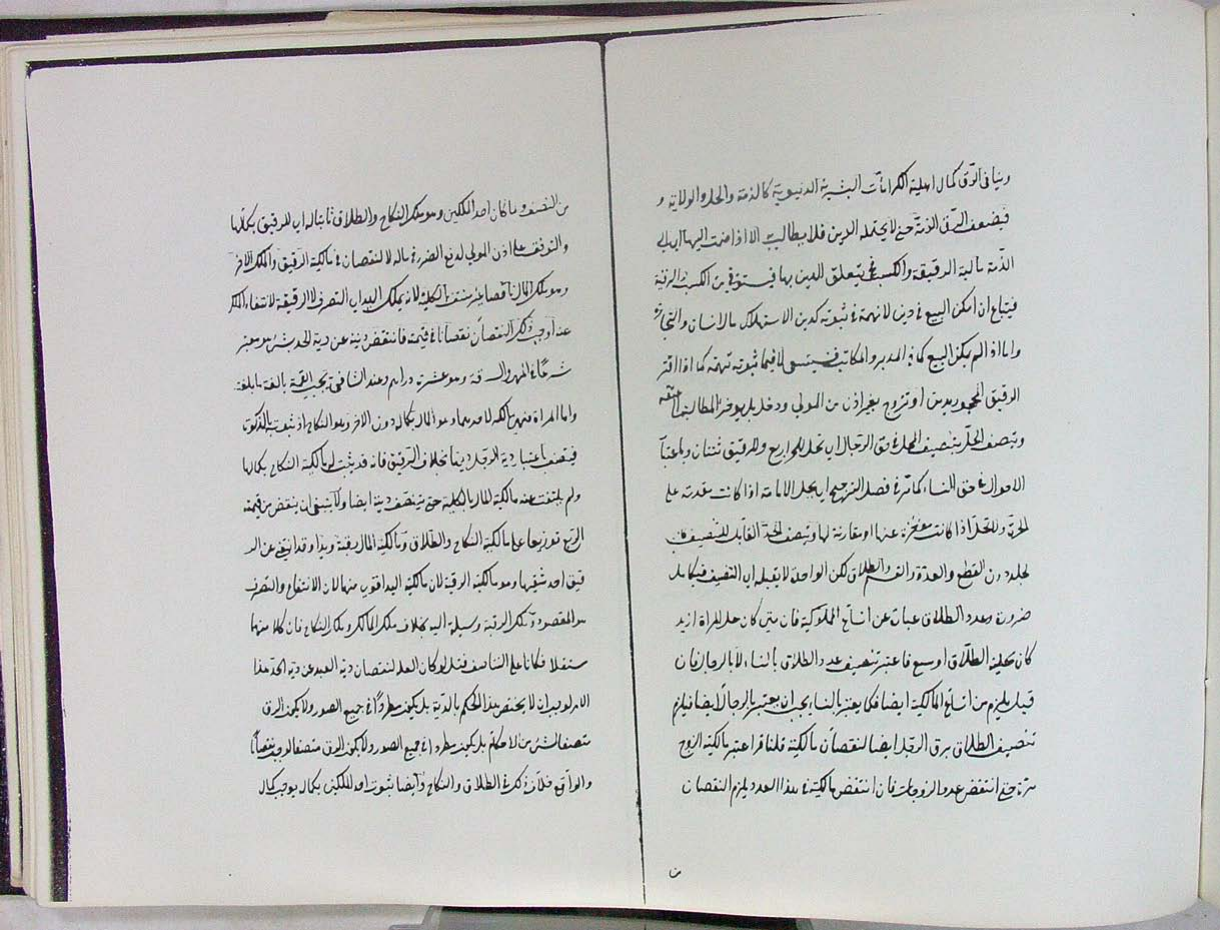 وينافي الرق كمال اهلية الكرامات البشرية الدنيوية كالذمة والحل والولاية و
فيضعف الرق الذمة حتى لا يحتمله الدين فلا يطالب الا اذا ضمت اليها اي الى
الذمة مالية الرقيقة والكسب في تعلق الدين بها فيستوفي من الكسب الرقبة
فيباع ان امكن البيع في دين لا تهمة في ثبوته كدين الاستهلاك مالا لانسان والتجارة
واما اذا لم يكن البيع كما في المدبر والمكاتب فيستسعى لا فيما ثبوته تهمة كما اذا اقر
الرقيق المحجور بدين او تزوج بغير اذن من المولى ودخل بل يؤخر المطالبة الى عتقه
وتنصف الحل بتنصيف المحل في حق الرجال اي تحل للحر اربع وللرقيق ثنتان وباعتبار
الاحوال في حق النساء كما مر في فصل الترجيح اي يحل الامة اذا كانت متقدمة على
الحرة ولا تحل اذا كانت مؤخرة عنها او مقارنة لها وتنصف الحد القابل للتنصيف في
الجلد دون القطع والعدة والقسم والطلاق لكن الواحدة لا يقبله اي التنصيف فيتكامل
ضرورة وعدد الطلاق عبارة عن اتساع المملوكية فان متى كان حل المراة ازيد
كان محلية الطلاق اوسع فاعتبر تنصيف عدد الطلاق بالنساء لا بالرجال فان
قيل يلزم من اتساع المالكية ايضا فكما يعتبر بالنساء يجب ان يعتبر بالرجال ايضا فيلزم
تنصيف الطلاق برق الرجل ايضا لنقصان مالكيته قلنا قد اعتبر مالكية الزوج
مرة حتى انتقض عدد الزوجات فان انتقض مالكيته في هذا العدد يلزم النقصان
من
من النصف و ما كان احد الملكين وهو ملك النكاح والطلاق ثابتا له اي للرقيق بكمالها
والتوقف على اذن المولى لدفع الضرر في ماله لا لنقصان في مالكية الرقيق والملك الاخر
وهو ملك المال ناقصا غير منتف بالكلية لانه يملك اليد اي التصرف لا الرقيقة لانتفاء الملك
عنه اوجب ذلك النقصان نقصانا في قيمته فانتقض دية عن دية الحر بشيء هو معتبر
شرعا في المهر والسرقة وهو عشرة دراهم وعند الشافعي تجب القيمة بالغة ما بلغت
واما المراة فهي مالكة لاحدهما وهو المال بكماله دون الاخر وهو النكاح اذ ثبوت بالذكورة
فينصف باعتبار دية الرجل ديتها بخلاف الرقيق فانه قد يثبت له مالكية النكاح بكمالها
ولم ينتف عنه مالكية المال بالكلية حتى تنصف دية ايضا وكان ينبغي ان ينتقض من قيمته
الربع توزيعا على مالكية النكاح والطلاق ومالكية المال رقبة ويدا وقد انتفى عن الر
قيق احد شقيها وهو مالكية الرقبة لان مالكية اليد اقوى منها لان الانتفاع والتصرف
هو المقصود وملك الرقبة وسيلة اليه بخلاف ملك المال وملك النكاح فان كلا منهما
مستقلا فكانا على التناصف قيل لو كان العلة لنقصان دية العبد عن دية الحر هذا
الامر لوجب ان لا يختص هذا الحكم بالدية بل يكون مطردا في جميع الصور ولا يكون الرق
منصفا لشيء من الاحكام بل يكون مطردا في جميع الصور ولا يكون الرق منصفا لو يوجب نقصانا
والواقع خلافه ذكر في الطلاق والنكاح وايضا ثبوت احد الملكين بكمال يوجب كمال